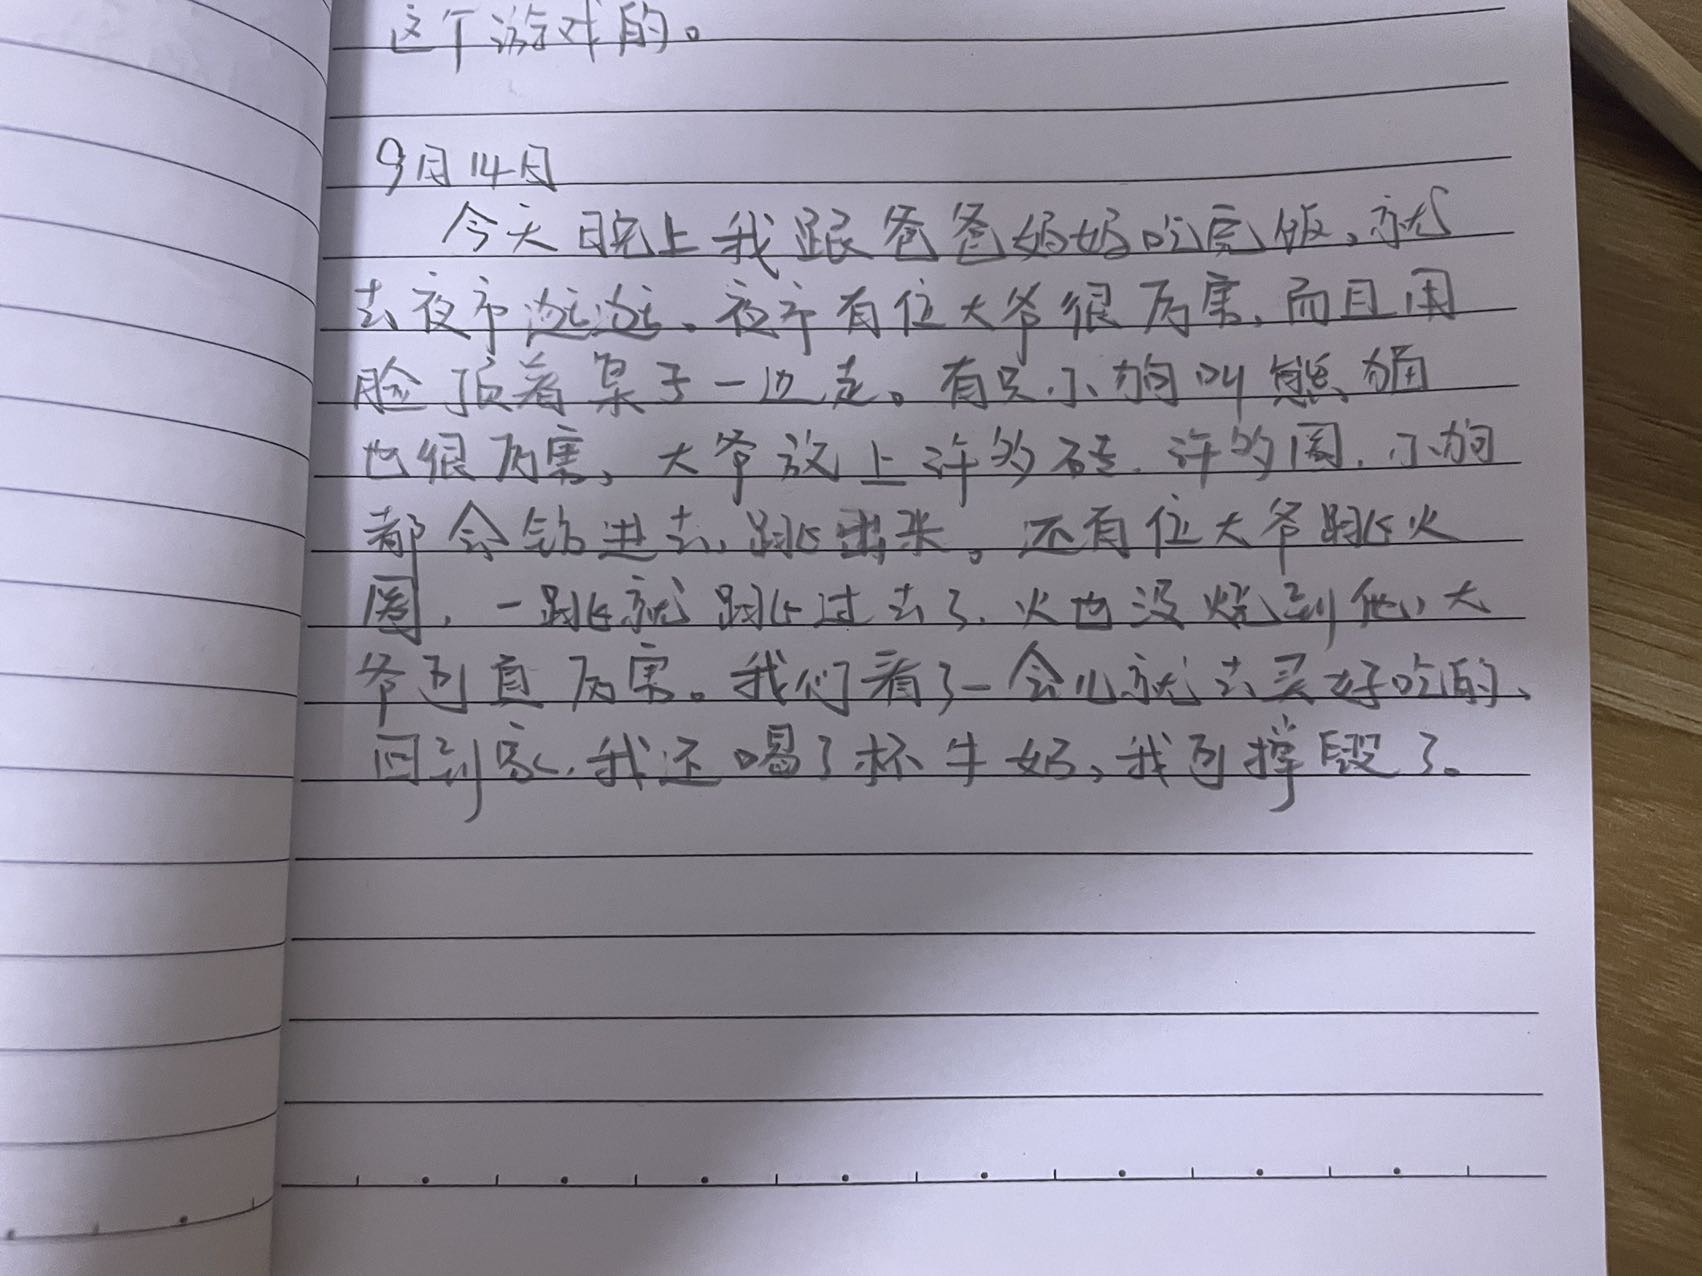 这个游戏的。
9月14日
今天晚上我跟爸爸妈妈吃完饭,就
去夜市逛逛。夜市有位大爷很厉害,而且用
脸顶着桌子一边走。有只小狗叫熊猫
也很厉害,大爷放上许多砖,许多圈,小狗
都会钻进去,跳出来。还有位大爷跳火
圈,一跳就跳过去了,火也没烧到他,大
爷可真厉害。我们看了一会儿就去买好吃的,
回到家,我还喝了杯牛奶,我可撑了。